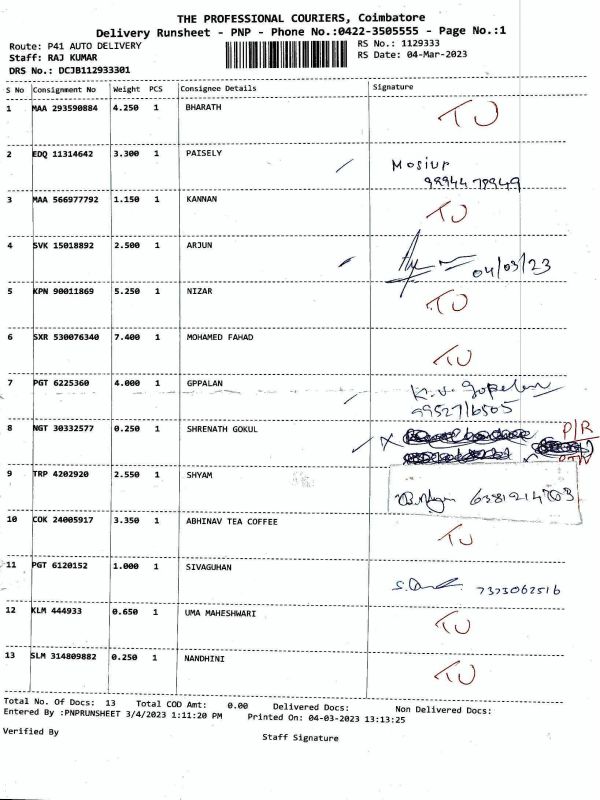 THE PROFESSIONAL COURIERS, Coimbatore
Delivery Runsheet - PNP - Phone No.:0422-3505555 - Page No.:1
Route: P41 AUTO DELIVERY
RS No.: 1129333
Staff: RAJ KUMAR
RS Date: 04-Mar-2023
DRS No.: DCJB112933301
S No Consignment No Weight PCS Consignee Details Signature
1 MAA 293590884 4.250 1 BHARATH TU
2 EDQ 11314642 3.300 1 PAISELY Mosiup
9894478949
3 MAA 566977792 1.150 1 KANNAN TU
4 SVK 15018892 2.500 1 ARJUN 04/03/23
5 KPN 90011869 5.250 1 NIZAR TU
6 SXR 530076340 7.400 1 MOHAMED FAHAD TU
7 PGT 6225360 4.000 1 GPPALAN K.V. Gopalan
9952716505
8 NGT 30332577 0.250 1 SHRENATH GOKUL X P/R
9 TRP 4202920 2.550 1 SHYAM 6381214703
10 COK 24005917 3.350 1 ABHINAV TEA COFFEE TU
11 PGT 6120152 1.000 1 SIVAGUHAN 7373062516
12 KLM 444933 0.650 1 UMA MAHESHWARI TU
13 SLM 314809882 0.250 1 NANDHINI TU
Total No. Of Docs: 13 Total COD Amt: 0.00 Delivered Docs: Non Delivered Docs:
Entered By :PNPRUNSHEET 3/4/2023 1:11:20 PM Printed On: 04-03-2023 13:13:25
Verified By
Staff Signature